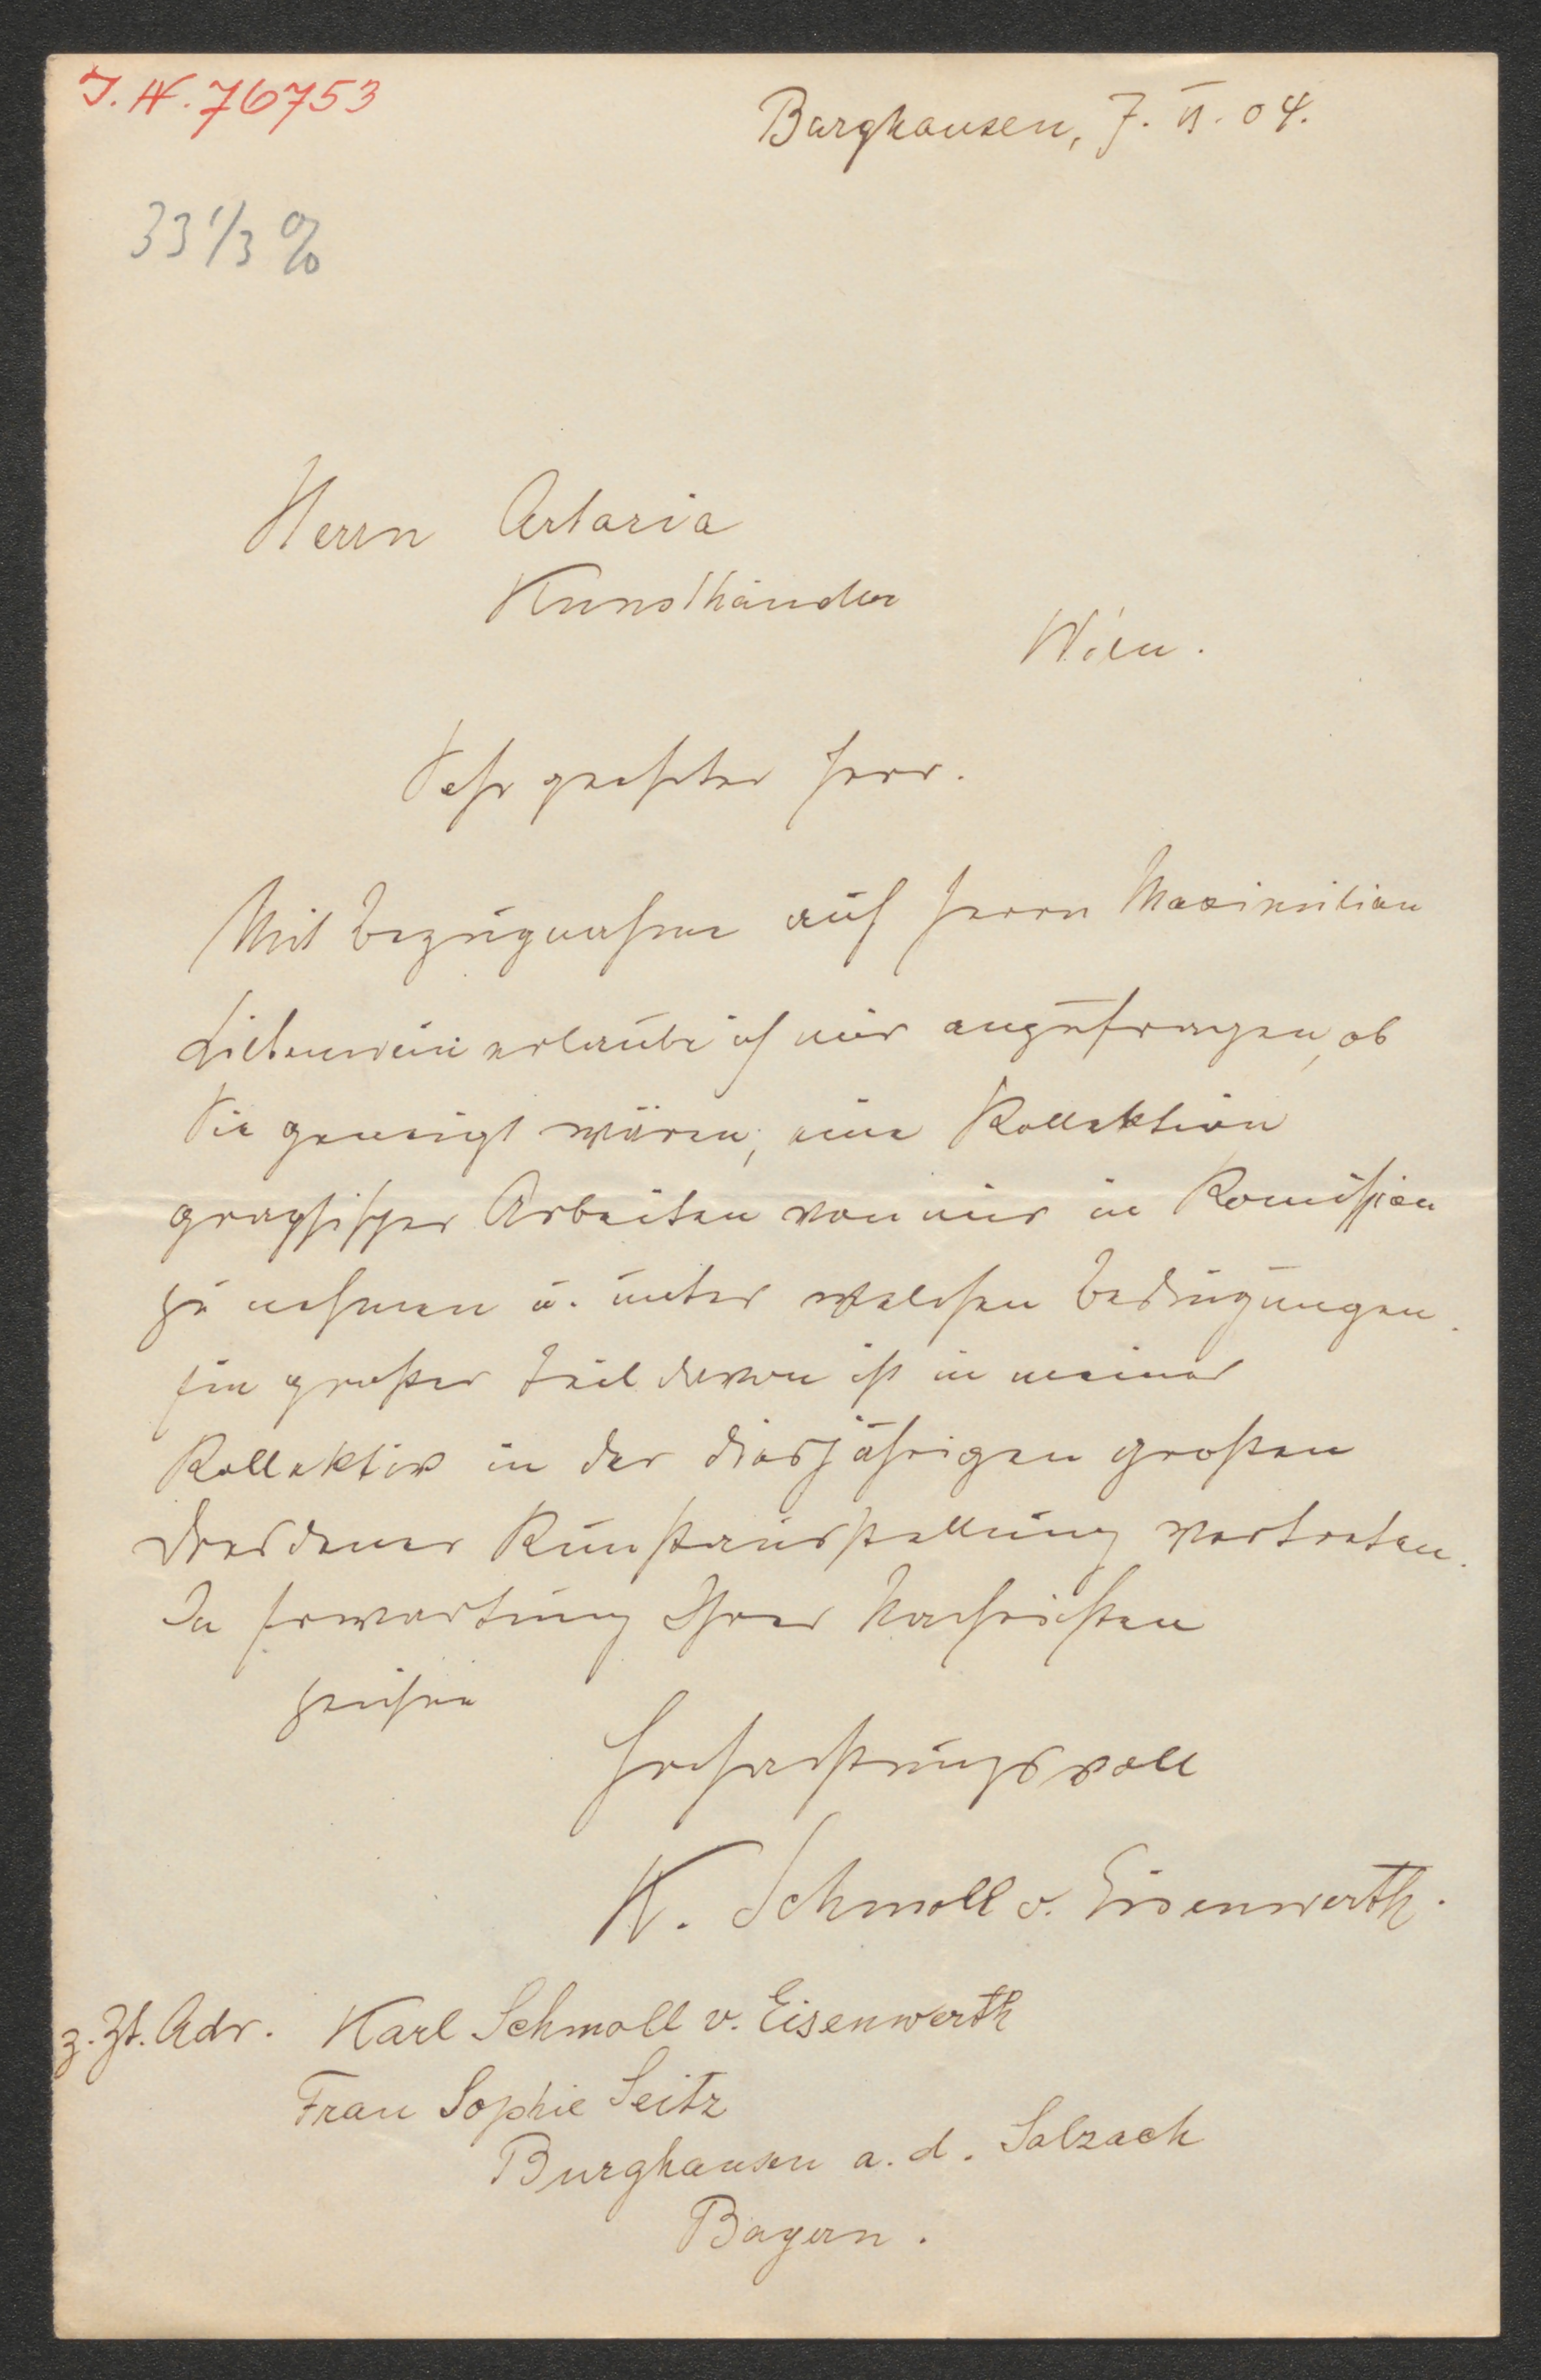 I. N. 76753
Burghausen, 7. VI. 04.
33 1/3 %
Herrn Artaria
Kunsthändler
Wien.
Sehr geehrter Herr.
Mit Bezugnahme auf Herrn Maximilian
Liebenwein erlaube ich mir anzufragen, ob
Sie geneigt wären, eine Kollektion
graphischer Arbeiten von mir in Komission
zu nehmen u. unter welchen Bedingungen.
Ein großer Teil davon ist in meiner
Kollektiv in der diesjährigen großen
Dresdener Kunstausstellung vertreten.
In Erwartung Ihrer Nachrichten
zeichne
Hochachtungsvoll
K. Schmoll v. Eisenwerth.
z. Zt. Adr. Karl Schmoll v. Eisenwerth
Frau Sophie Seitz
Burghausen a. d. Salzach
Bayern.